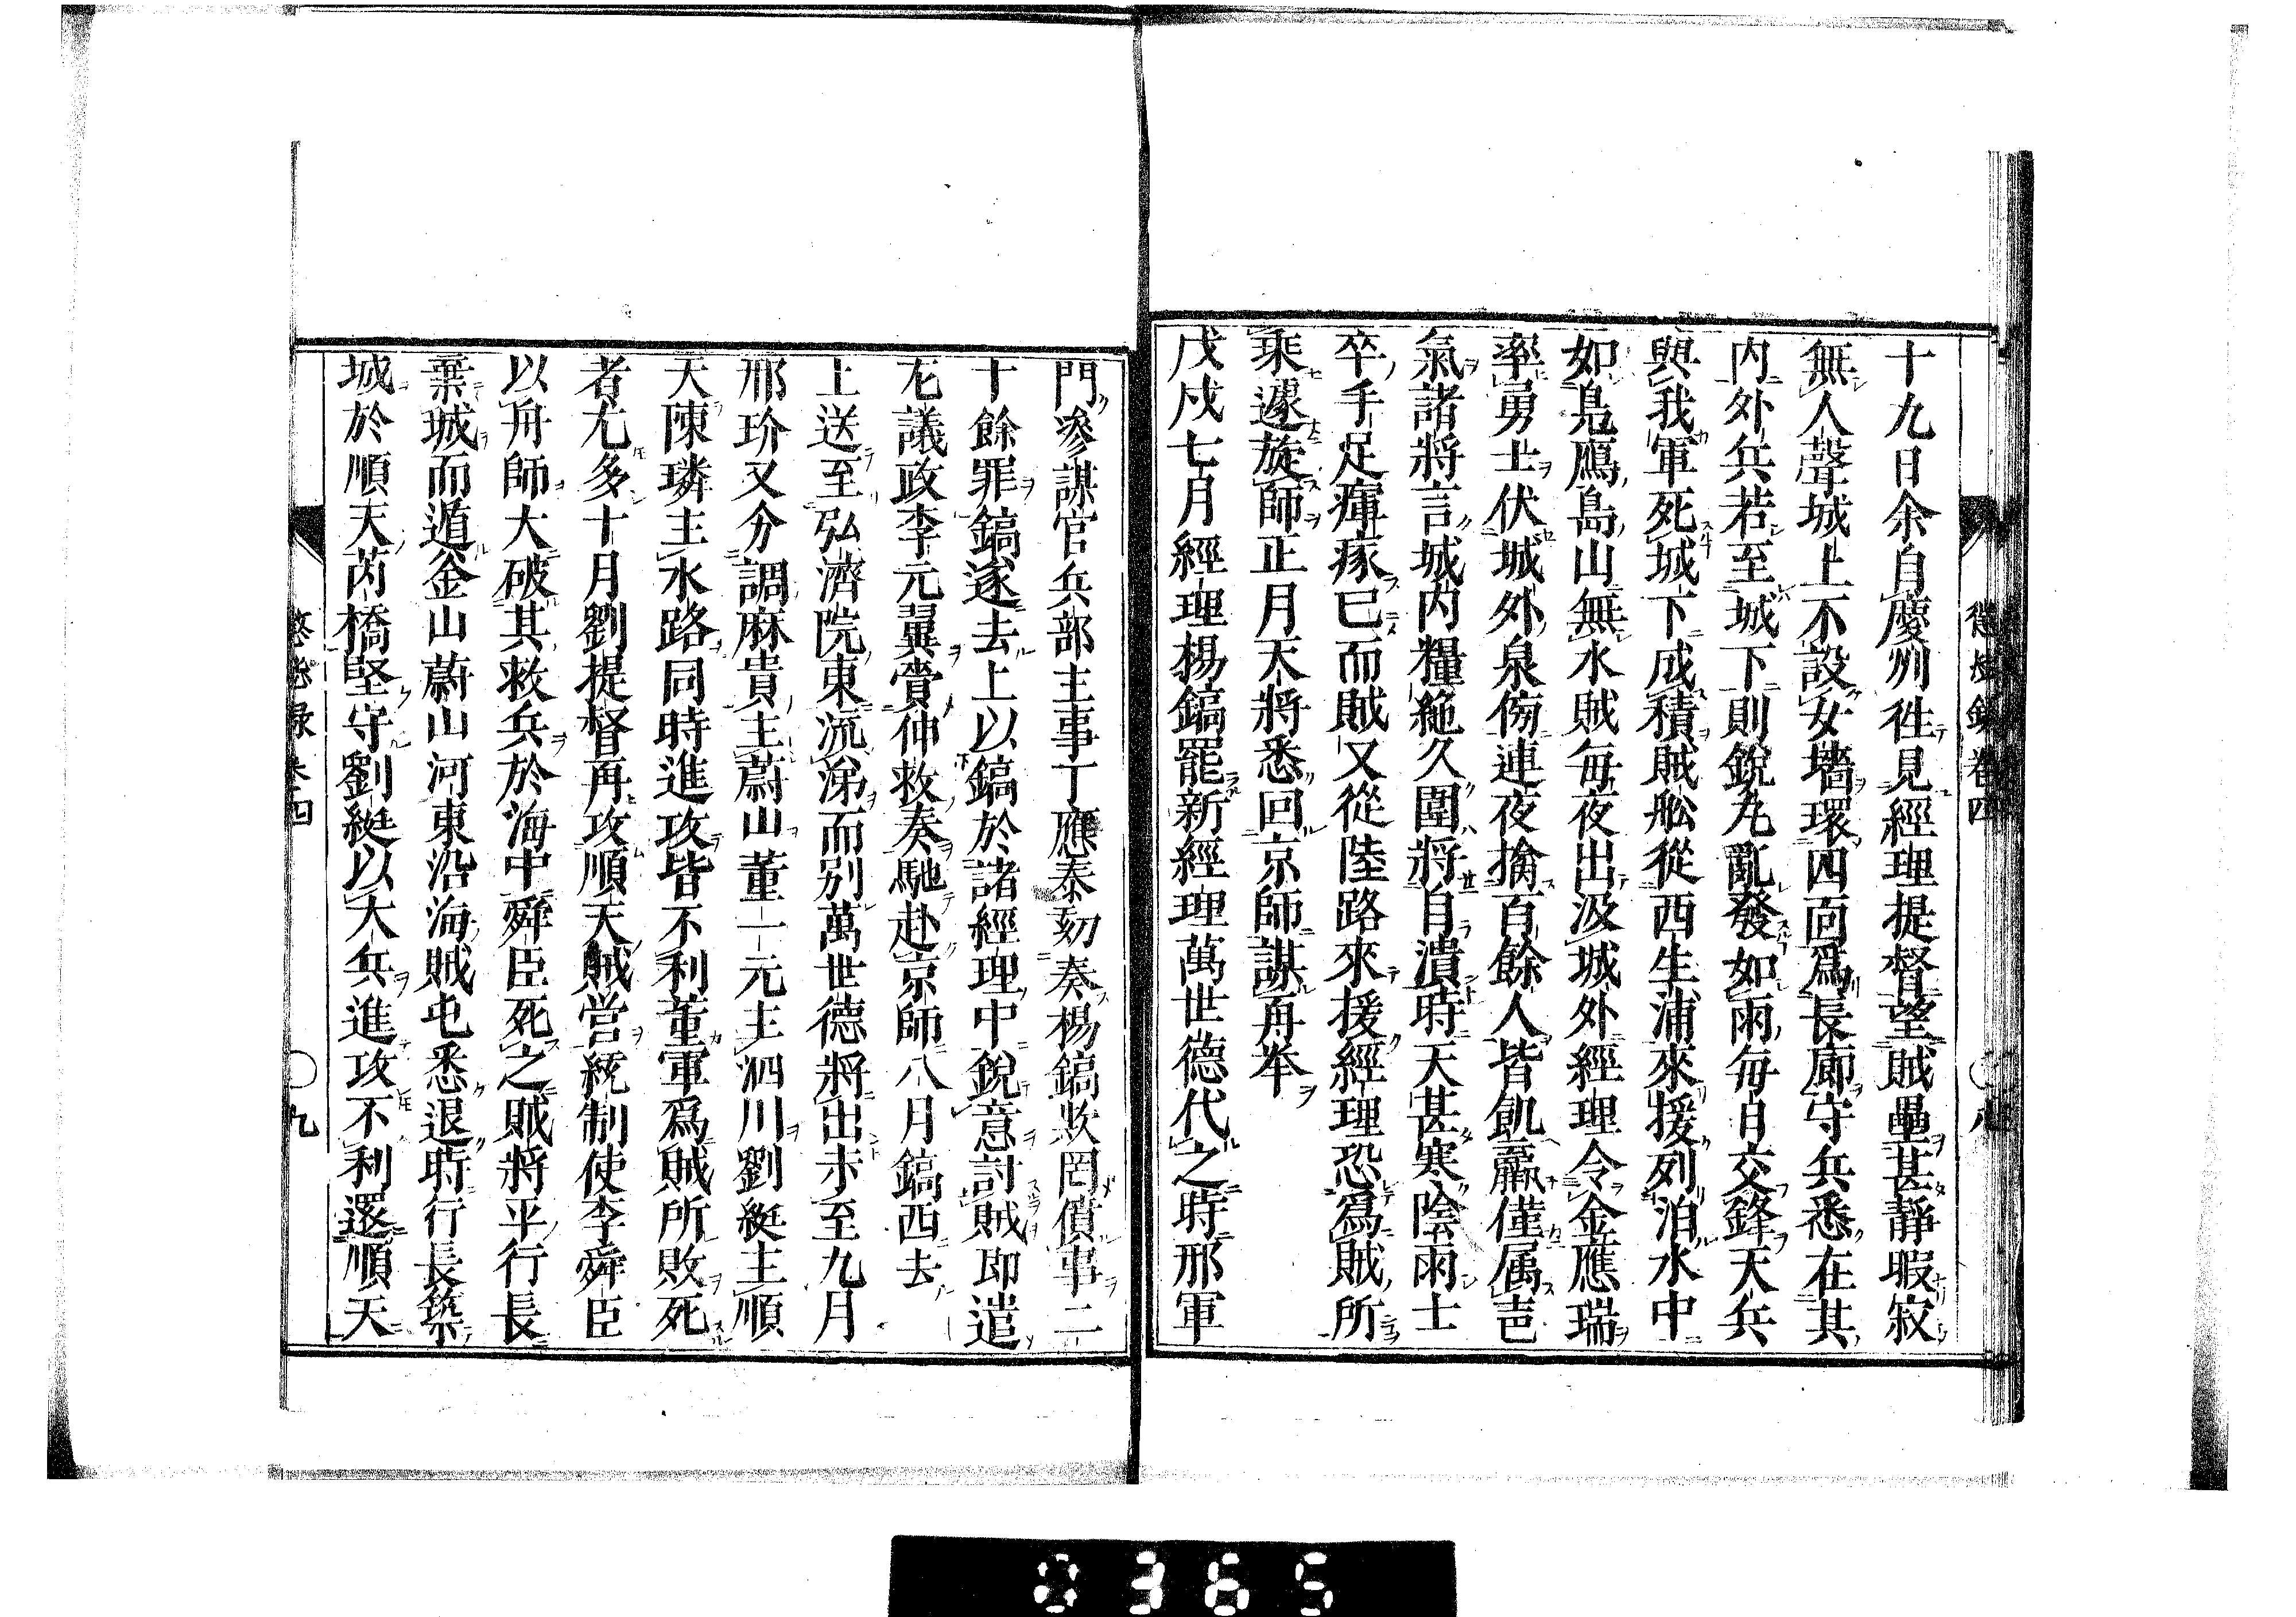 十九日余自慶州徃見經理提督望賊壘甚靜暇寂
無人聲城上不設女墻環四面爲長廊守兵悉在其
内外兵若至城下則銃丸亂發如雨毎日交鋒天兵
與我軍死城下成積賊舩從西生浦來援列泊水中
如鳬鴈島山無水賊毎夜出汲城外經理令金應瑞
率勇士伏城外泉傍連夜擒百餘人皆飢羸僅属㫖
氣諸將言城内糧絶久圍將自潰時天甚寒陰雨士
卒手足瘒瘃已而賊又從陸路來援經理恐爲賊所
乘遽旋師正月天將悉回京師謀再举
戊戌七月經理楊鎬罷新經理萬世德代之時邢軍
門參謀官兵部主事丁應泰劾奏楊鎬欺罔僨事二
十餘罪鎬遂去上以鎬於諸經理中銳意討賊即遣
左議政李元翼賫伸救奏馳赴京師八月鎬西去
上送至弘濟院東流涕而別萬世德將出未至九月
邢玠又分調麻貴主蔚山董一元主泗川劉綎主順
天陳璘主水路同時進攻皆不利董軍爲賊所敗死
者尤多十月劉提督再攻順天賊営統制使李舜臣
以舟師大破其救兵於海中舜臣死之賊將平行長
棄城而遁釜山蔚山河東沿海賊屯悉退時行長築
城於順天芮橋堅守劉綎以大兵進攻不利還順天
懲毖録卷四
八
懲毖录卷四
九
0365